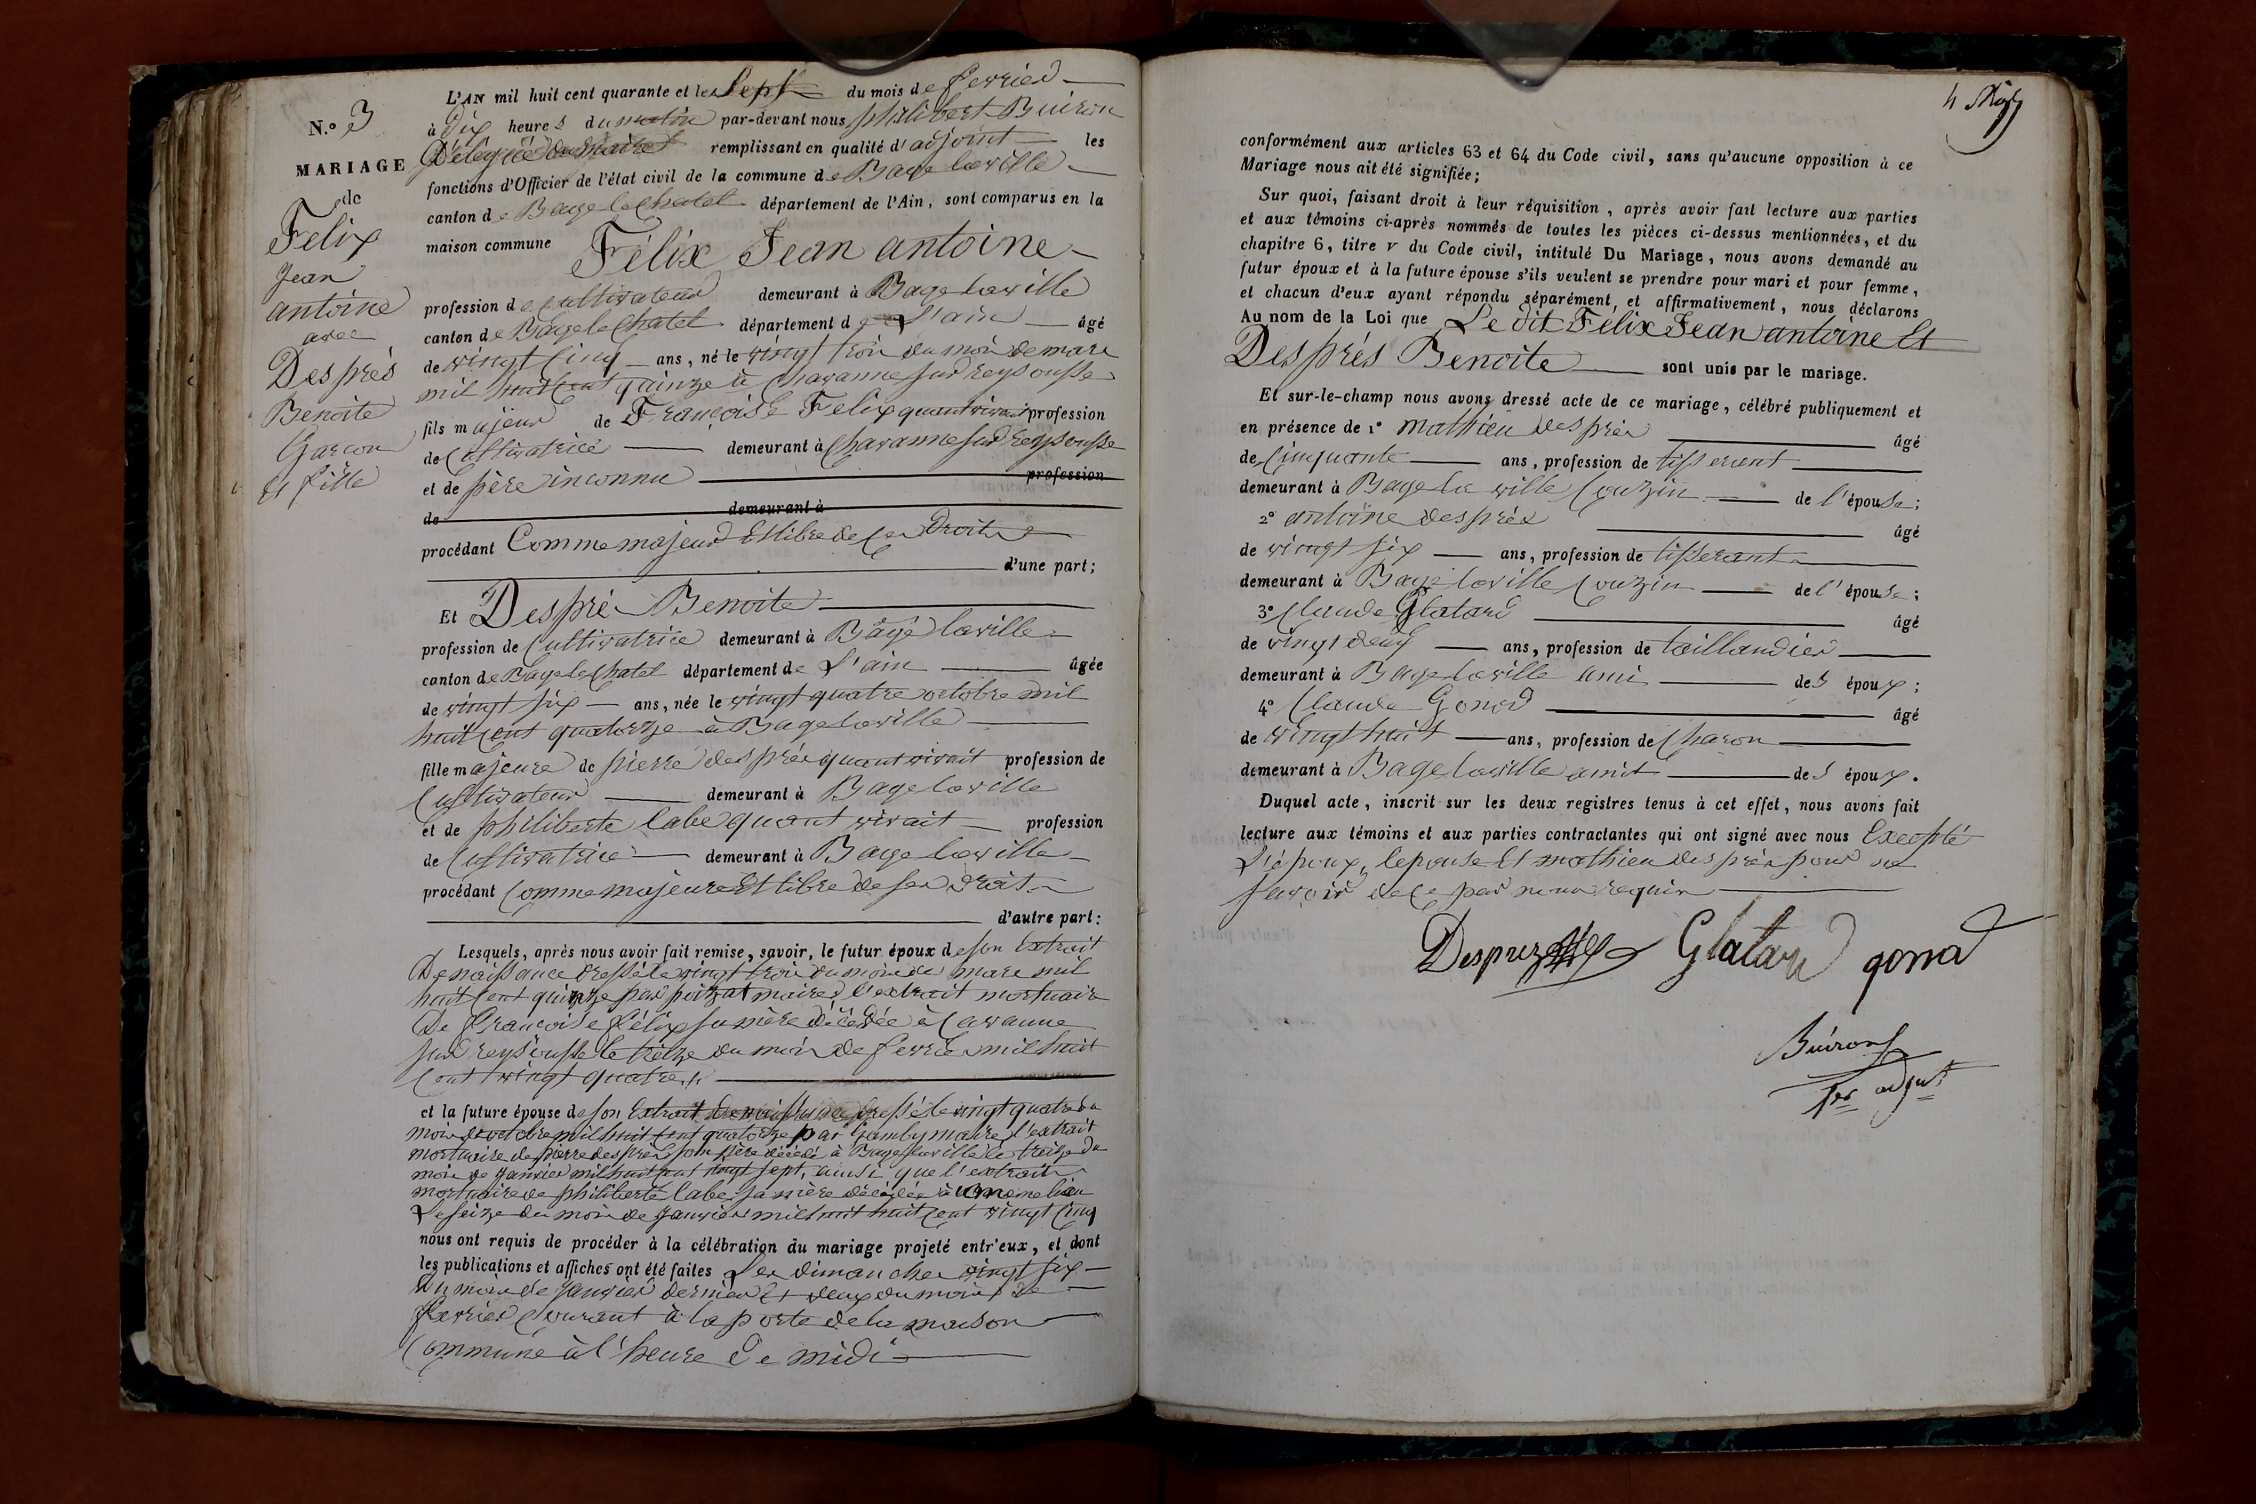 N.º 3
MARIAGE
de
Felix
Jean
antoine
avec
Després
Benoite
Garcon
et fille
L'AN mil huit cent quarante et le Sept du mois de fevrier
à Dix heures du matin par-devant nous philibert Buiron
Délégué du Maire remplissant en qualité d'adjoint les
fonctions d'Officier de l'état civil de la commune de Bage laville
canton de Bage le Chatel département de l'Ain, sont comparus en la
maison commune Félix Jean antoine
profession de Cultivateur demeurant à Bage laville
canton de Bage le Chatel département de L'ain âgé
de vingt Cinq ans, né le vingt trois du mois de mars
mil huit Cent quinze à Chavanne sur reysousse
fils majeur de Françoise Felix quant vivait profession
de Cultivatrice demeurant à Chavanne sur reysousse
et de père inconnu profession
de demeurant à
procédant Comme majeur Et libre de Ses Droits
d'une part;
Et Despré Benoite
profession de Cultivatrice demeurant à Bagé laville
canton de Bage le Chatel département de L'ain âgée
de vingt six ans, née le vingt quatre octobre mil
huit Cent quatorze à Bage laville
fille majeure de pierre després quant vivait profession de
Cultivateur demeurant à Bage laville
et de philiberte labe quant vivait profession
de Cultivatrice demeurant à Bage laville
procédant Comme majeure Et libre de ses droits
d'autre part:
Lesquels, après nous avoir fait remise, savoir, le futur époux de son Extrait
De naissance dressé le vingt trois du mois de mars mil
huit Cent quinze par maire, l'extrait mortuaire
De Françoise Félix sa mère décédée à Cavanne
sur reysousse le treize du mois de fevrier mil huit
Cent vingt quatre
et la future épouse de son Extrait de naissance dressé le vingt quatre du
mois d'octobre mil huit Cent quatorze par Gamby maire, l'extrait
mortuaire de pierre després son père décédé à Bage laville le treize du
mois de Janvier mil huit Cent vingt sept, ainsi que l'extrait
mortuaire de philiberte labe sa mère décédée au même lieu
Le seize du mois de Janvier mil huit huit Cent vingt Cinq
nous ont requis de procéder à la célébration du mariage projeté entr'eux, et dont
les publications et affiches ont été faites Les dimanches vingt six
du mois de Janvier dernier Et deux du mois de
fevrier Courant à la porte de la maison
Commune à l'heure De midi
4
conformément aux articles 63 et 64 du Code civil, sans qu'aucune opposition à ce
Mariage nous ait été signifiée;
Sur quoi, faisant droit à leur réquisition, après avoir fait lecture aux parties
et aux témoins ci-après nommés de toutes les pièces ci-dessus mentionnées, et du
chapitre 6, titre v du Code civil, intitulé Du Mariage, nous avons demandé au
futur époux et à la future épouse s'ils veulent se prendre pour mari et pour femme,
et chacun d'eux ayant répondu séparément et affirmativement, nous déclarons
Au nom de la Loi que Le dit Félix Jean antoine Et
Després Benoite sont unis par le mariage.
Et sur-le-champ nous avons dressé acte de ce mariage, célébré publiquement et
en présence de 1º mathieu després âgé
de Cinquante ans, profession de tisserant
demeurant à Bage la ville Couzin de l'épouse;
2º antoine després âgé
de vingt six ans, profession de tisserant
demeurant à Bage laville Couzin de l'épouse;
3º Claude Glatard âgé
de vingt deux ans, profession de taillandier
demeurant à Bage laville ami des époux;
4º Claude Gonod âgé
de vingt huit ans, profession de Charon
demeurant à Bage laville amit des époux.
Duquel acte, inscrit sur les deux registres tenus à cet effet, nous avons fait
lecture aux témoins et aux parties contractantes qui ont signé avec nous Excepté
L'époux, l'epouse Et mathieu després pour ne
savoir de Ce par nous requis
Desprez Glatard gonod
Buiron
1er adjt